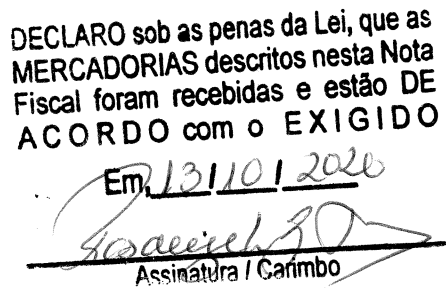 DECLARO sob as penas da Lei, que as
MERCADORIAS descritos nesta Nota
Fiscal foram recebidas e estão DE
ACORDO com o EXIGIDO
Em, 13 / 10 / 2020
Assinatura / Carimbo